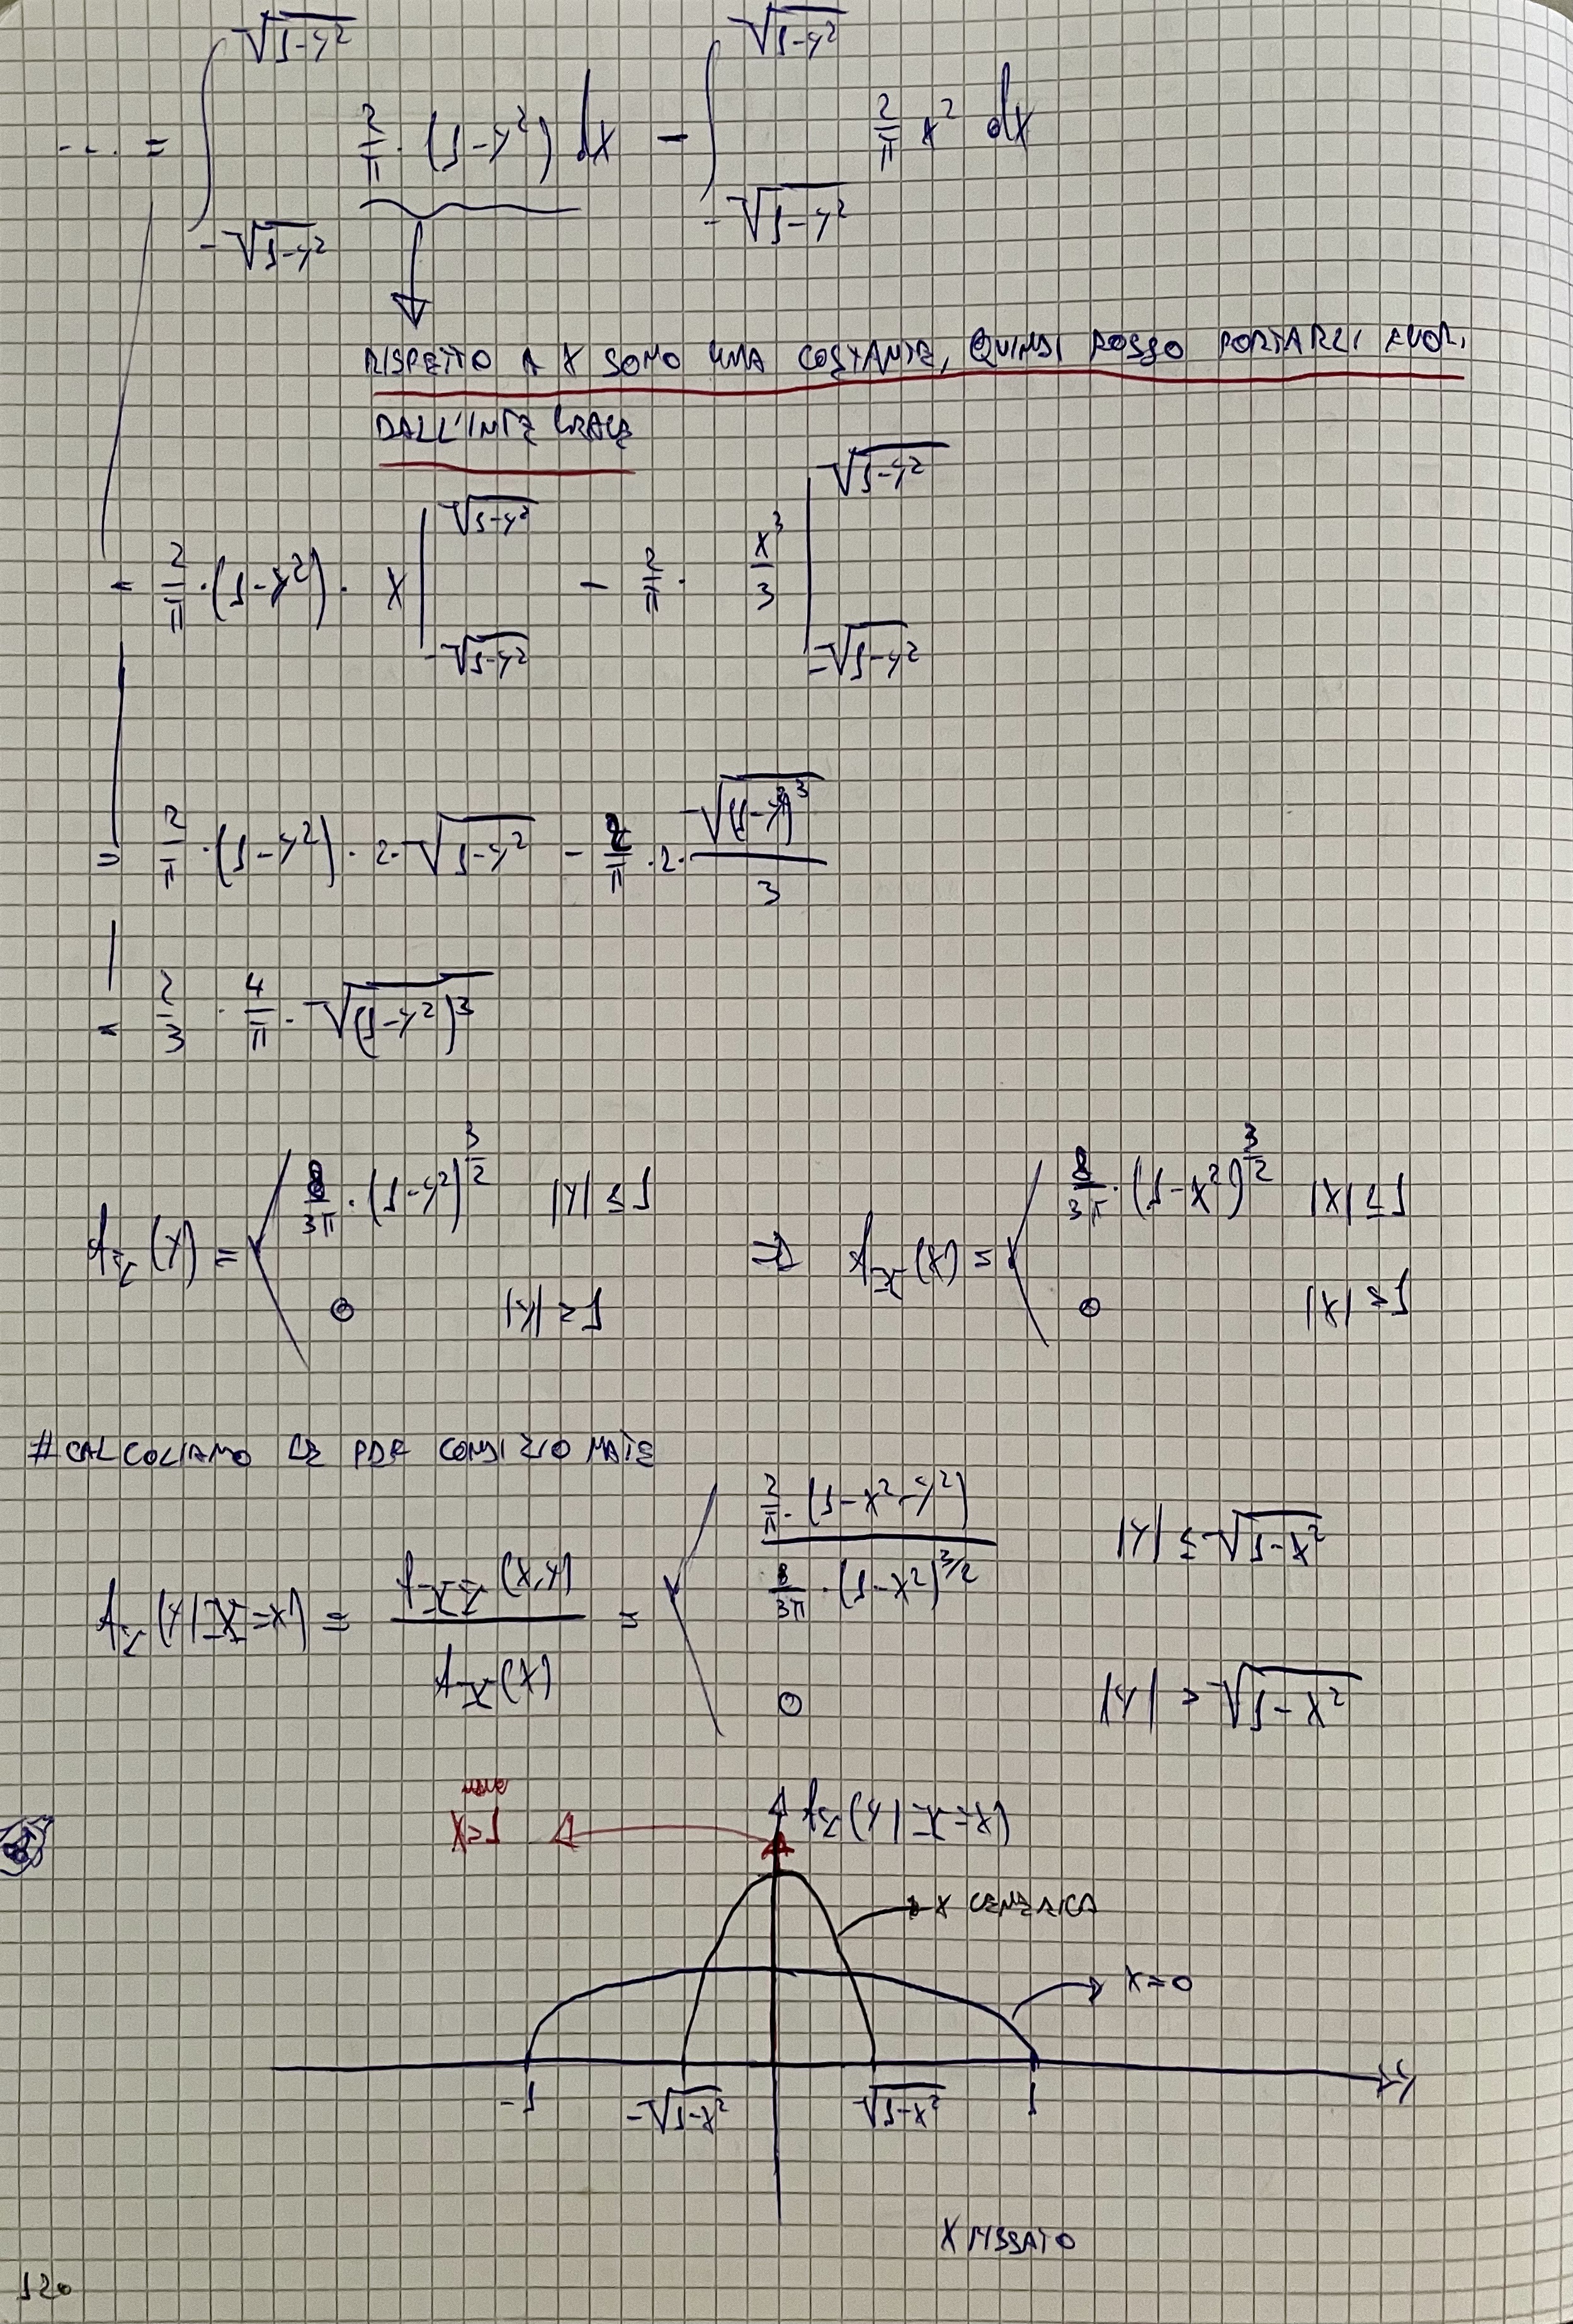 ... = ∫_{-√(1-y²)}^{√(1-y²)} 2/π · (1-y²) dx - ∫_{-√(1-y²)}^{√(1-y²)} 2/π x² dx
RISPETTO A X SONO UNA COSTANTE, QUINDI POSSO PORTARLI FUORI
DALL'INTEGRALE
= 2/π · (1-y²) · x |_{-√(1-y²)}^{√(1-y²)} - 2/π · x³/3 |_{-√(1-y²)}^{√(1-y²)}
= 2/π · (1-y²) · 2 · √(1-y²) - 2/π · 2 · √((1-y²)³)/3
= 2/3 · 4/π · √((1-y²)³)
f_Y(y) = { 8/3π · (1-y²)^{3/2} |y| ≤ 1 ; 0 |y| ≥ 1 ⇒ f_X(x) = { 8/3π · (1-x²)^{3/2} |x| ≤ 1 ; 0 |x| ≥ 1
# CALCOLIAMO LE PDF CONDIZIONATE
f_Y(y|X=x) = f_XY(x,y) / f_X(x) = { 2/π · (1-x²-y²) / 8/3π · (1-x²)^{3/2} |y| ≤ √(1-x²) ; 0 |y| > √(1-x²)
x=1
f_Y(y|X=x)
x GENERICA
x=0
-1 -√(1-x²) √(1-x²) 1 y
X FISSATO
120